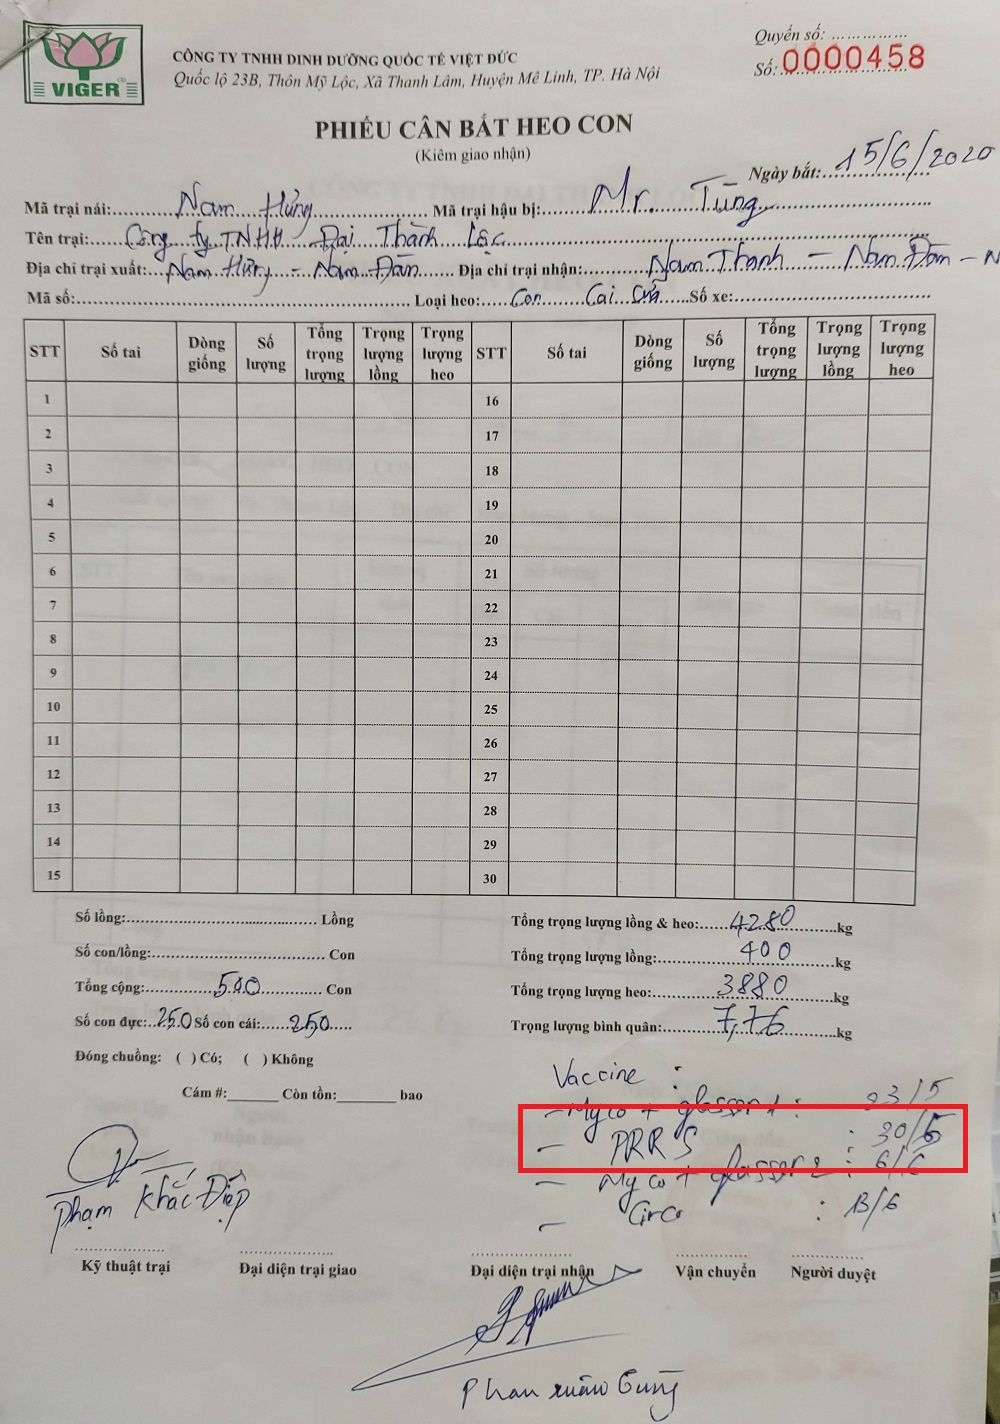 VIGER
CÔNG TY TNHH DINH DƯỠNG QUỐC TẾ VIỆT ĐỨC
Quốc lộ 23B, Thôn Mỹ Lộc, Xã Thanh Lâm, Huyện Mê Linh, TP. Hà Nội
Quyển số: ……………
Số: 0000458
PHIẾU CÂN BẮT HEO CON
(Kiêm giao nhận)
Ngày bắt: 15/6/2020
Mã trại nái: Nam Hưng Mã trại hậu bị: Mr. Tùng
Tên trại: Công ty TNHH Đại Thành Lộc
Địa chỉ trại xuất: Nam Hưng - Nam Đàn Địa chỉ trại nhận: Nam Thanh - Nam Đàn - N
Mã số: Loại heo: Con Cai Sữa Số xe:
STT Số tai Dòng giống Số lượng Tổng trọng lượng Trọng lượng lồng Trọng lượng heo STT Số tai Dòng giống Số lượng Tổng trọng lượng Trọng lượng lồng Trọng lượng heo
1 16
2 17
3 18
4 19
5 20
6 21
7 22
8 23
9 24
10 25
11 26
12 27
13 28
14 29
15 30
Số lồng: Lồng
Số con/lồng: Con
Tổng cộng: 500 Con
Số con đực: 250 Số con cái: 250
Đóng chuồng: ( ) Có; ( ) Không
Cám #:_______ Còn tồn:________ bao
Tổng trọng lượng lồng & heo: 4280 kg
Tổng trọng lượng lồng: 400 kg
Tổng trọng lượng heo: 3880 kg
Trọng lượng bình quân: 7,76 kg
Vaccine :
- Myco + glasser 1 : 23/5
- PRRS : 30/5
- Myco + glasser 2 : 6/6
- Circo : 13/6
Phạm Khắc Điệp
Kỹ thuật trại Đại diện trại giao Đại diện trại nhận Vận chuyển Người duyệt
Phan xuân Tùng